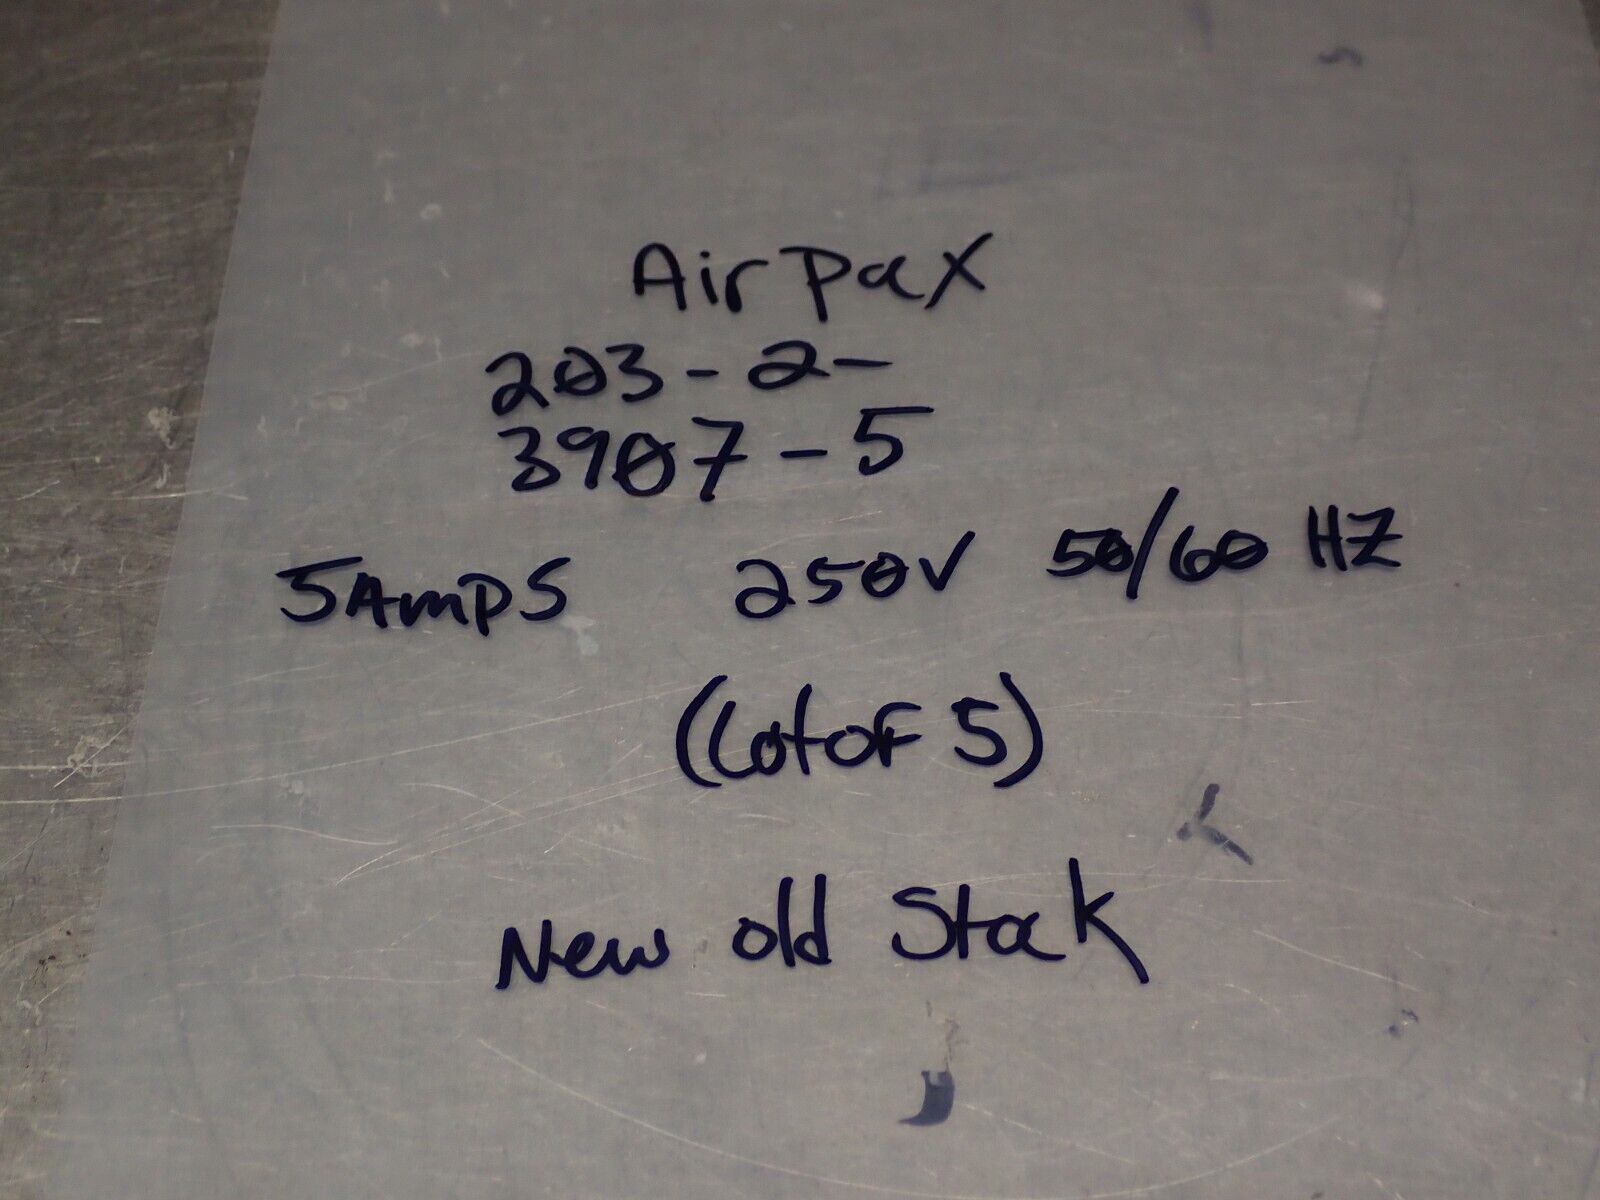 AirPax
203-2-
3907-5
5Amps 250V 50/60 HZ
(Lot of 5)
New old Stock